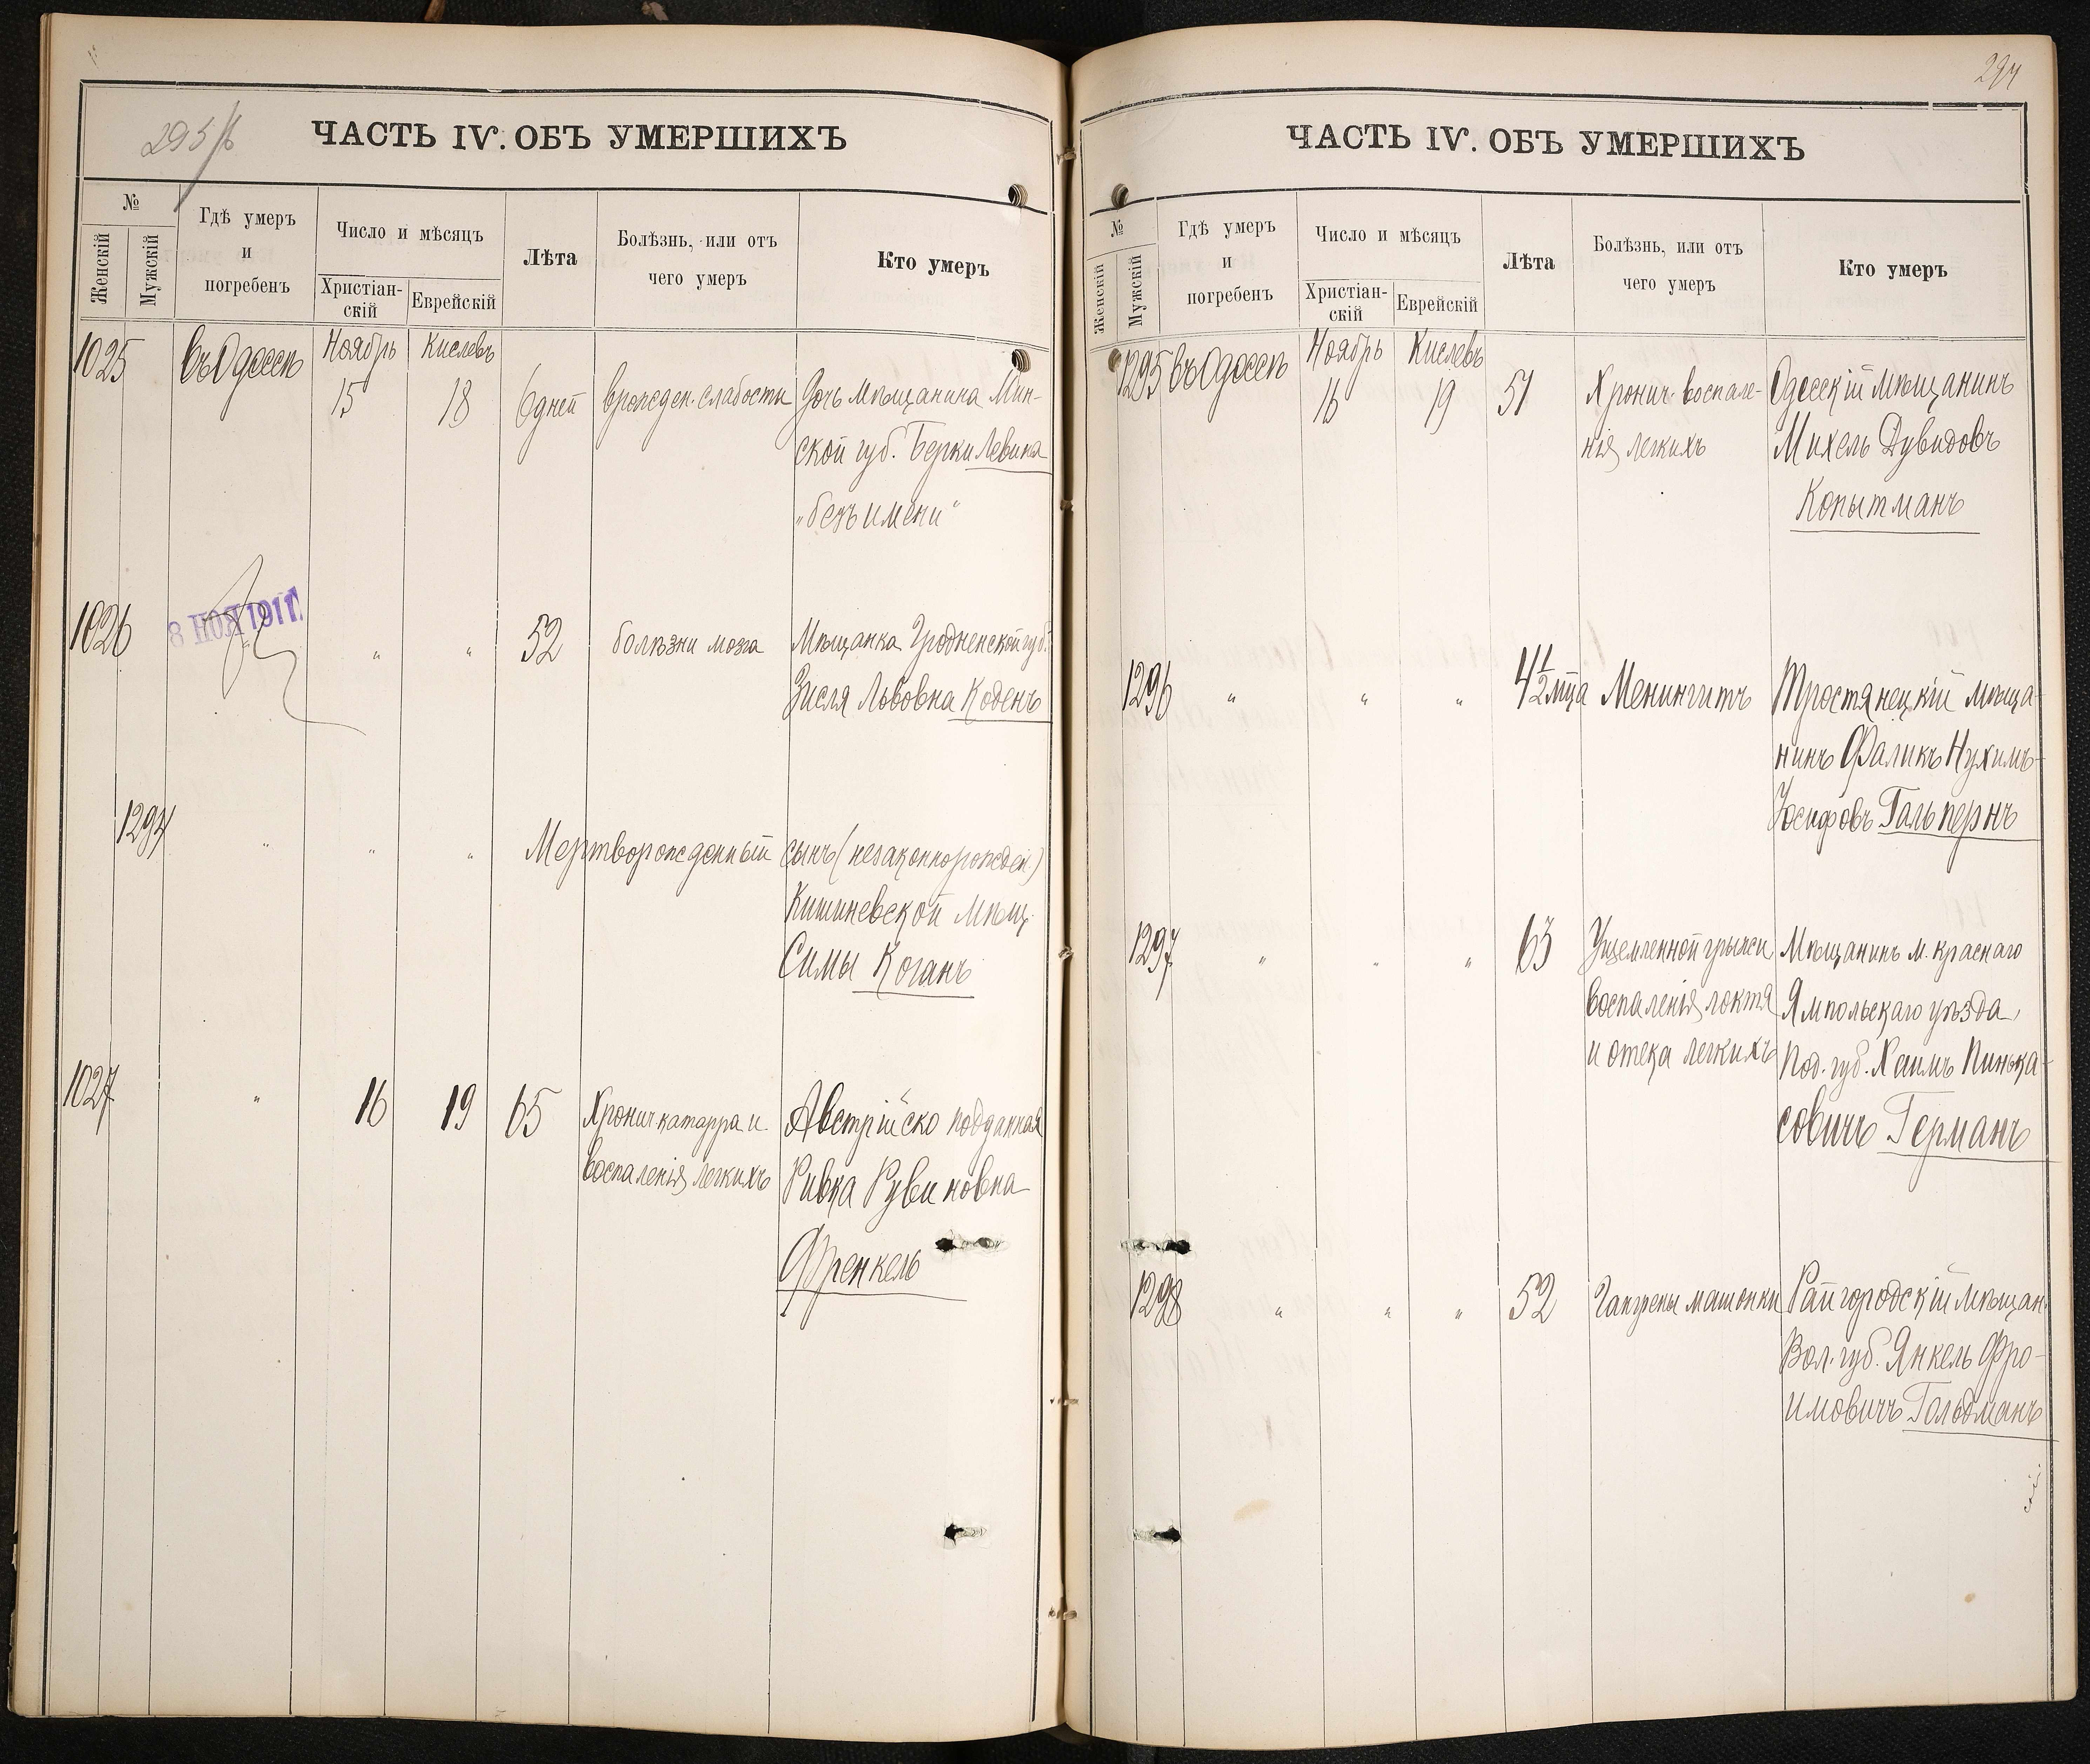 ЧАСТЬ IV. ОБЪ УМЕРШИХЪ
№
Женскій
Мужскій
Гдѣ умеръ
и
погребенъ
Число и мѣсяцъ
Христіан-
скій
Еврейскій
Лѣта
Болѣзнь, или отъ
чего умеръ
Кто умеръ
1025 въ Одессѣ Ноябрь Кислевъ
15 18 6 дней врожден. слабости Дочь мѣщанина Мин-
ской губ. Берки Левина
„безъ имени“
8 НОЯ 1911г.
1026 „ „ „ 52 болѣзни мозга Мѣщанка Гродненской губ.
Зисля Львовна Коденъ
1294 „ „ „ Мертворожденный сынъ (незаконнорожден.)
Кишиневской мѣщ.
Симы Коганъ
1027 „ 16 19 65 Хронич. катарра и Австрійско подданная
воспаленія легкихъ Ривка Рувиновна
Френкель
294
ЧАСТЬ IV. ОБЪ УМЕРШИХЪ
№
Женскій
Мужскій
Гдѣ умеръ
и
погребенъ
Число и мѣсяцъ
Христіан-
скій
Еврейскій
Лѣта
Болѣзнь, или отъ
чего умеръ
Кто умеръ
1295 въ Одессѣ Ноябрь Кислевъ
16 19 51 Хронич. воспале- Одесскій мѣщанинъ
нія легкихъ Михель Дувидовъ
Копытманъ
1296 „ „ „ 4 1/2 мца Менингитъ Тростянецкій мѣща-
нинъ Фаликъ Нухимъ-
Іосифовъ Гальпернъ
1297 „ „ „ 63 Ущемленной грыжи, Мѣщанинъ м. Краснаго
воспаленія локтя Ямпольскаго уѣзда,
и отека легкихъ Под. губ. Хаимъ Пинька-
совичъ Германъ
1298 „ „ „ 52 Гангрены машонки Райгородскій мѣщан.
Вол. губ. Янкель Фро-
имовичъ Гольдманъ